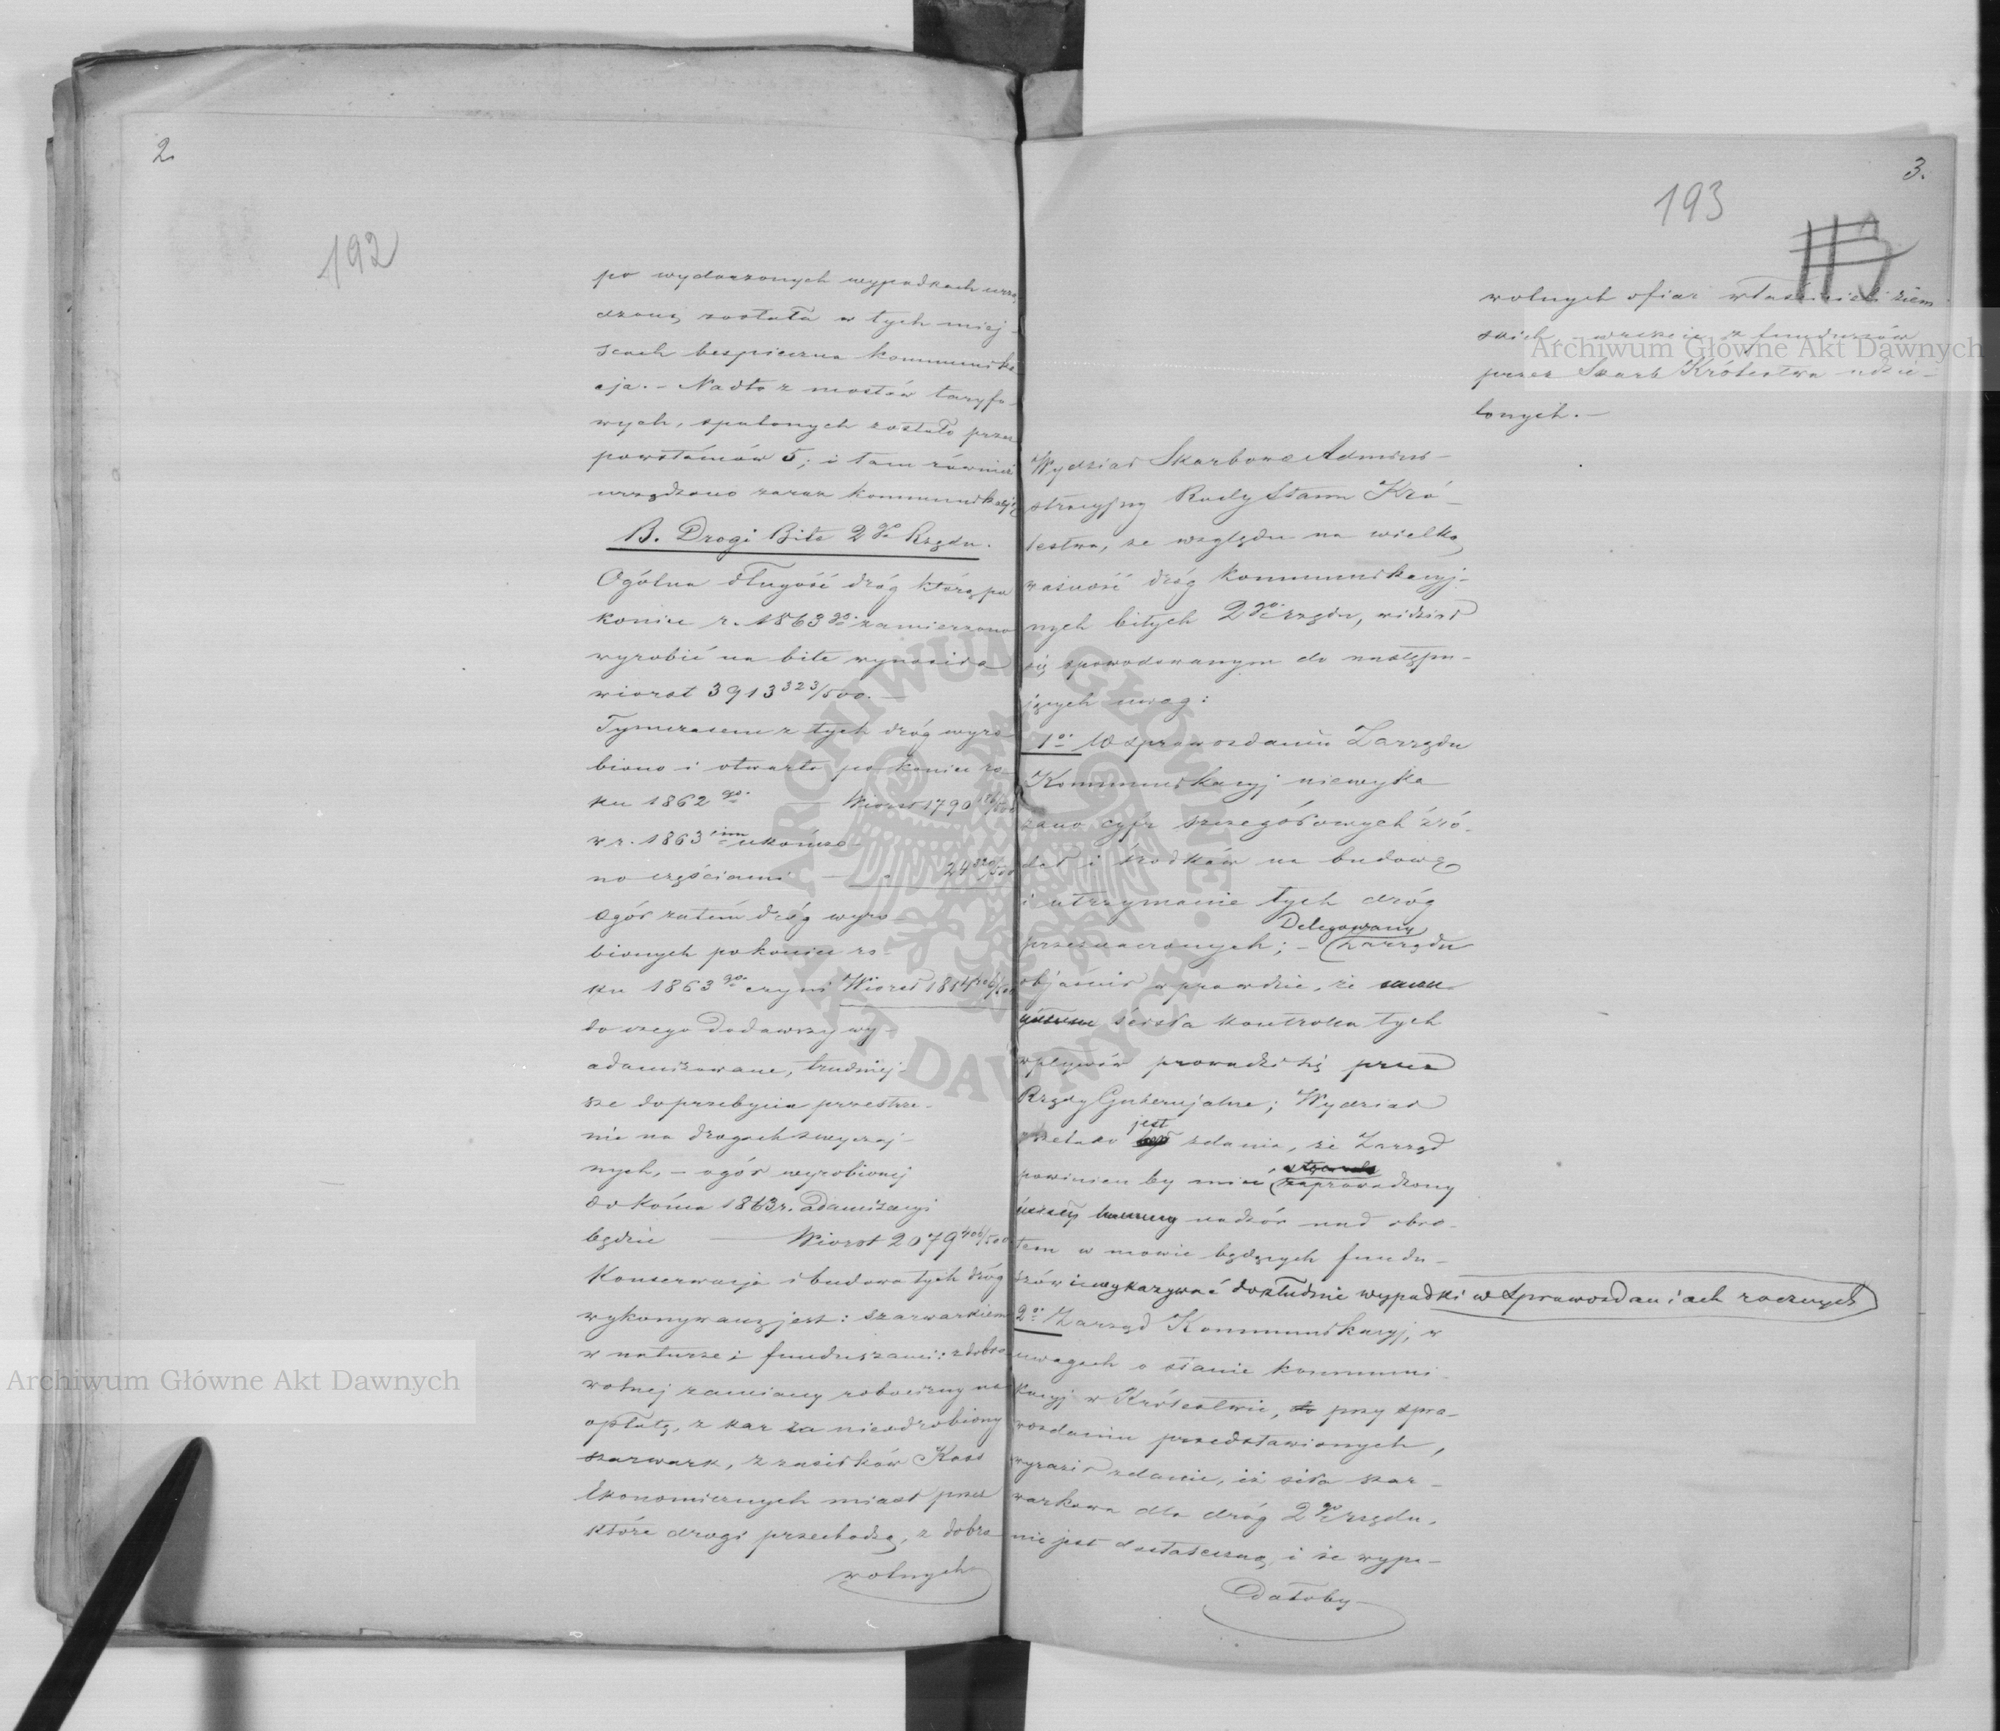 2.
192
po wydarzonych wypadkach urzą
dzoną została w tych miej-
scach bespieczna kommunika
cja. – Nadto z mostów taryfo-
wych, spalonych zostało przez
powstańców 5; i tam również
urządzono zaraz kommunikacją
B. Drogi Bite 2go Rzędu.
Ogólna długość dróg którą po
koniec r. 1863 go zamierzono
wyrobić na bite wynosiła
wiorst 3913 323/500. –
Tymczasem z tych dróg wyro-
biono i otwarto po koniec ro-
ku 1862 go — Wiorst 1790
w r. 1863 cim ukończo-
no częściami — „ 24 320/500
ogół zatém dróg wyro-
bionych po koniec ro-
ku 1863 go czyni Wiorst
do czego dodawszy wy-
adamizowane, trudniej-
sze do przebycia przestrze-
nie na drogach zwyczaj-
nych, – ogół wyrobionej
do końca 1863 r. adamizacyi
będzie — Wiorst 2079 406/500
Konserwacja i budowa tych dróg
wykonywaną jest: szarwarkiem
w naturze i funduszami: z dobro
wolnej zamiany robocizny na
opłatę, z kar za nieodrobiony
szarwark, z zasiłków Kass
Ekonomicznych miast przez
które drogi przechodzą, z dobro
wolnych
3.
193
wolnych ofiar właścicieli ziem-
skich, wreszcie z funduszów
przez Skarb Królestwa udzie-
lonych. –
Wydział Skarbowo Admini-
stracyjny Rady Stanu Kró-
lestwa, ze względu na wielką
ważność dróg kommunikacyj-
nych bitych 2go rzędu, widział
się spowodowanym do następu-
jących uwag:
1o W sprawozdaniu Zarządu
Kommunikacyj niewyka
zano cyfr szczegółowych źró-
deł i środków na budowę
i utrzymanie tych dróg
przeznaczonych; – Delegowany
Zarządu
objaśnił wprawdzie, że
ścisła kontrolla tych
wpływów prowadzi się przez
Rządy Gubernjalne; Wydział
wszelako jest zdania, że Zarząd
powinien by mieć zaprowadzony
ścisły nadzór nad obro-
tem w mowie będących fundu-
szów i wykazywać dokładnie wypadki w Sprawozdaniach rocznych
2o Zarząd Kommunikacyj, w
uwagach o stanie kommuni-
kacyj w Królestwie, przy spra-
wozdaniu przedstawionych,
wyraził zdanie, iż siła szar-
warkowa dla dróg 2go rzędu,
nie jest dostateczną, i że wypa-
dałoby
Archiwum Główne Akt Dawnych
Archiwum Główne Akt Dawnych
ARCHIWUM GŁÓWNE AKT DAWNYCH